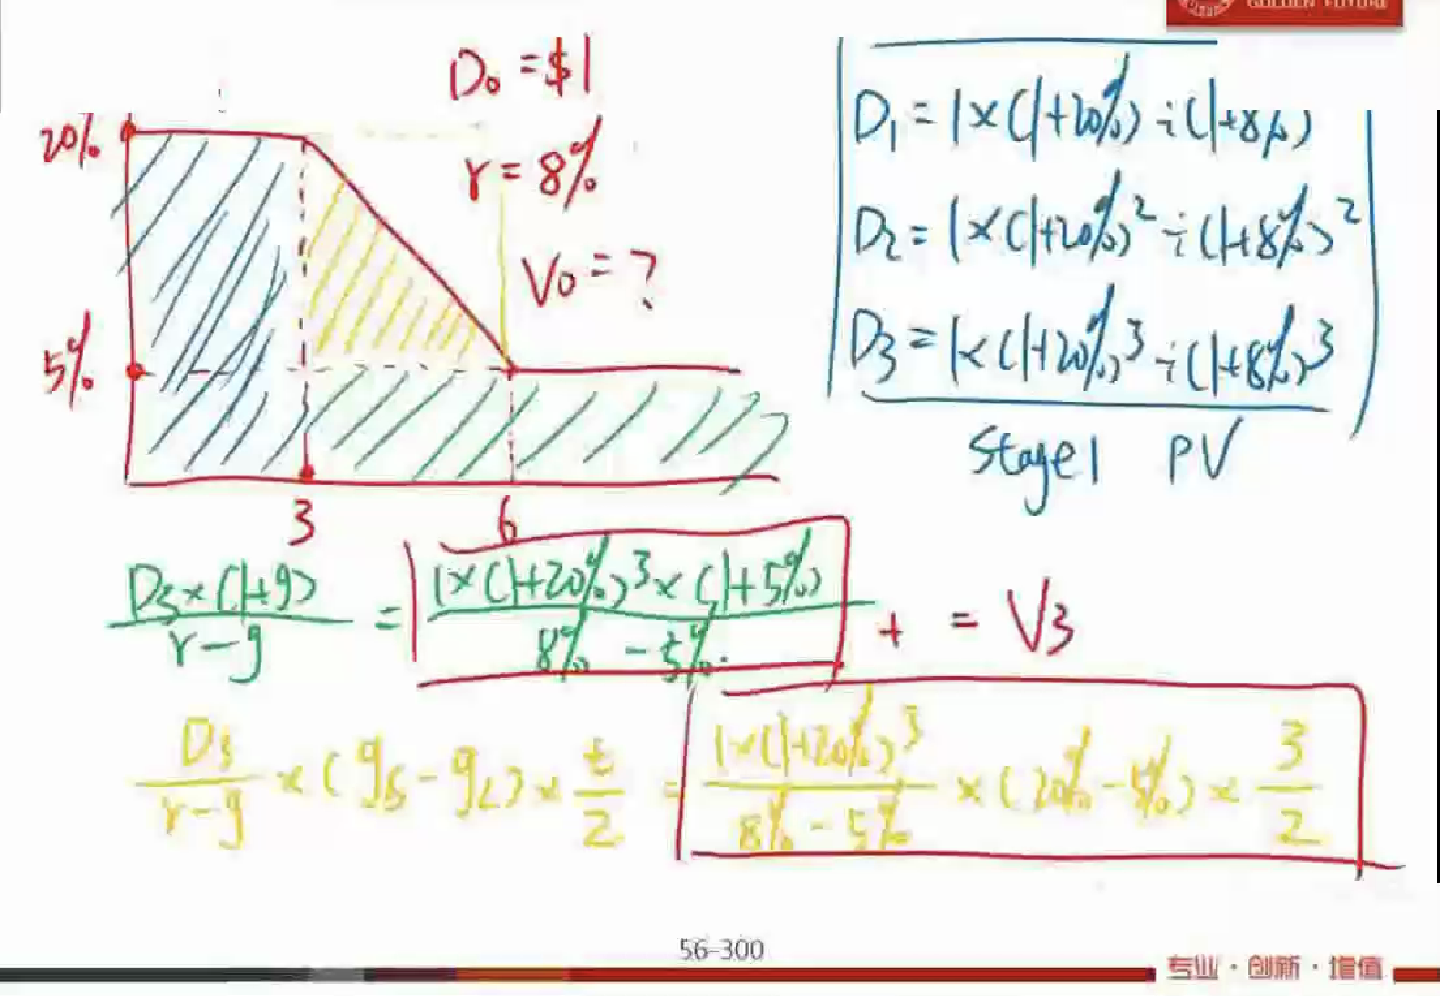 GOLDEN FUTURE
D₀ = $1
20%
r = 8%
V₀ = ?
5%
3
6
D₁ = 1×(1+20%) ÷ (1+8%)
D₂ = 1×(1+20%)² ÷ (1+8%)²
D₃ = 1×(1+20%)³ ÷ (1+8%)³
Stage1 PV
D₃×(1+g) / r−g = 1×(1+20%)³×(1+5%) / 8%−5% + = V₃
D₃ / r−g × (gₛ−g_L) × t/2 = 1×(1+20%)³ / 8%−5% × (20%−5%) × 3/2
56-300
专业·创新·增值